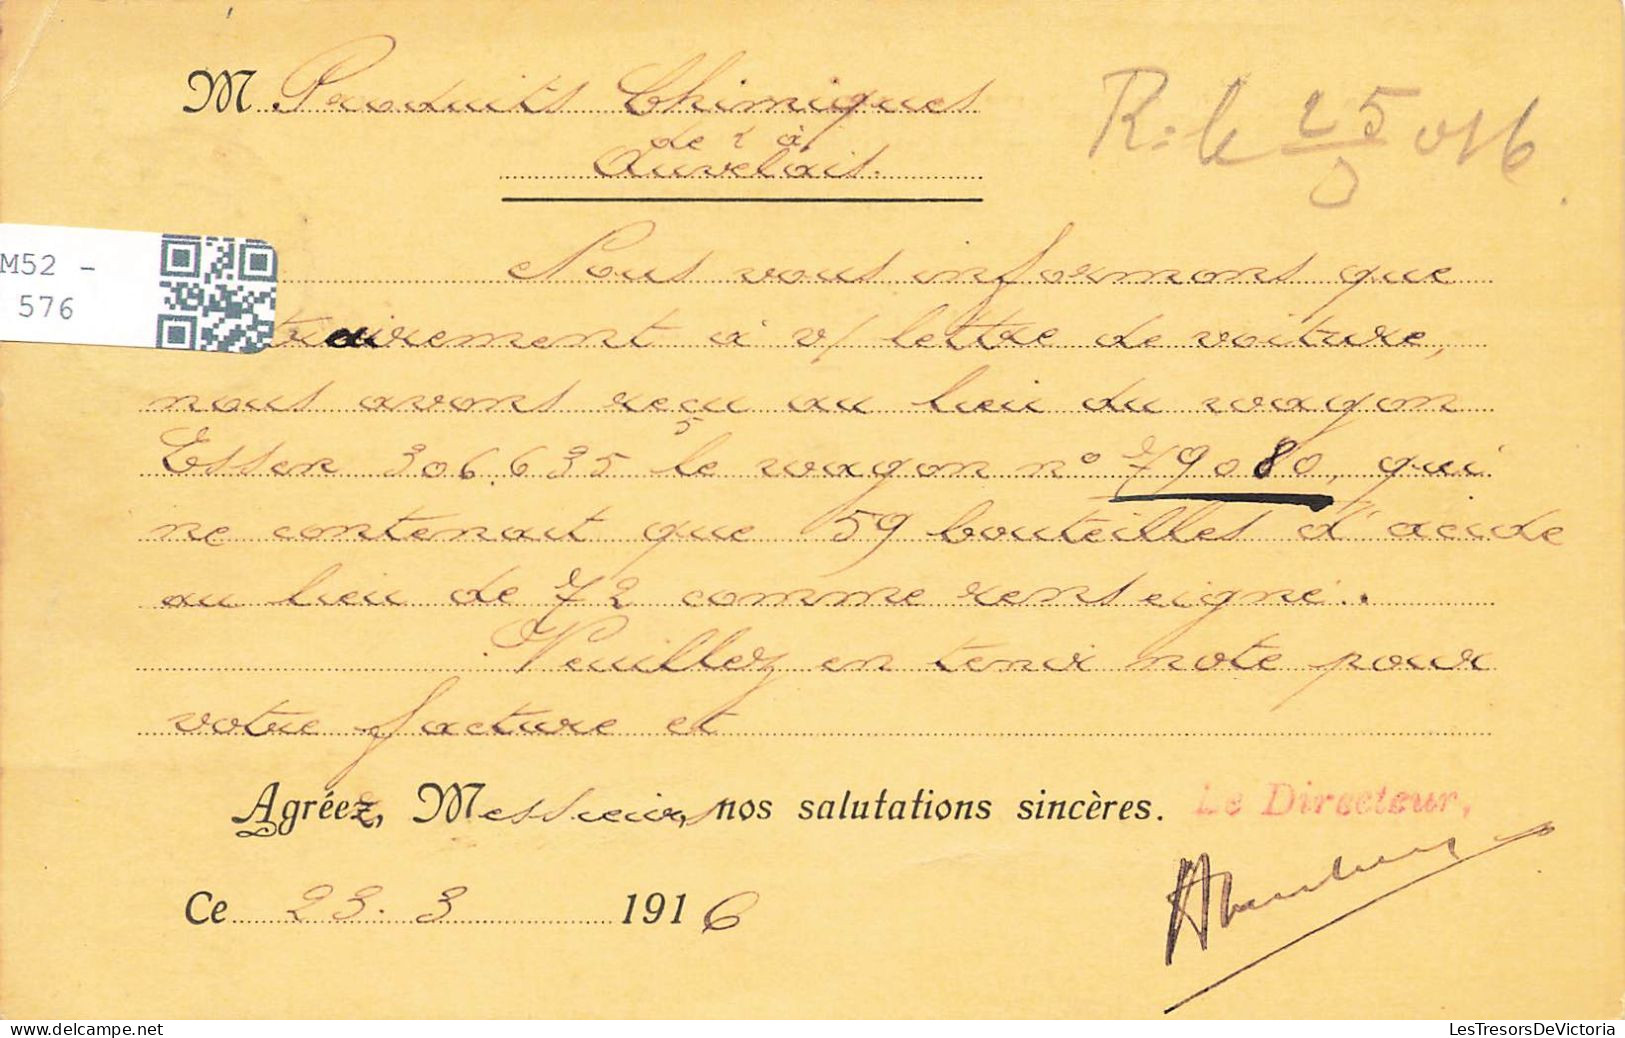 M Produits Chimiques
de à
Auvelais.
R: le 25/3 1916
Nous vous informons que
M52 -
576
trairement à v/ lettre de voiture,
nous avons reçu au lieu du wagon
Essen 306.635 le wagon n° 79080, qui
5
ne contenait que 59 bouteilles d'acide
au lieu de 72 comme renseigné..
Veuillez en tenir note pour
votre facture et
Agréez, Messieurs, nos salutations sincères. Le Directeur,
Ce 23.3 1916
LesTresorsDeVictoria